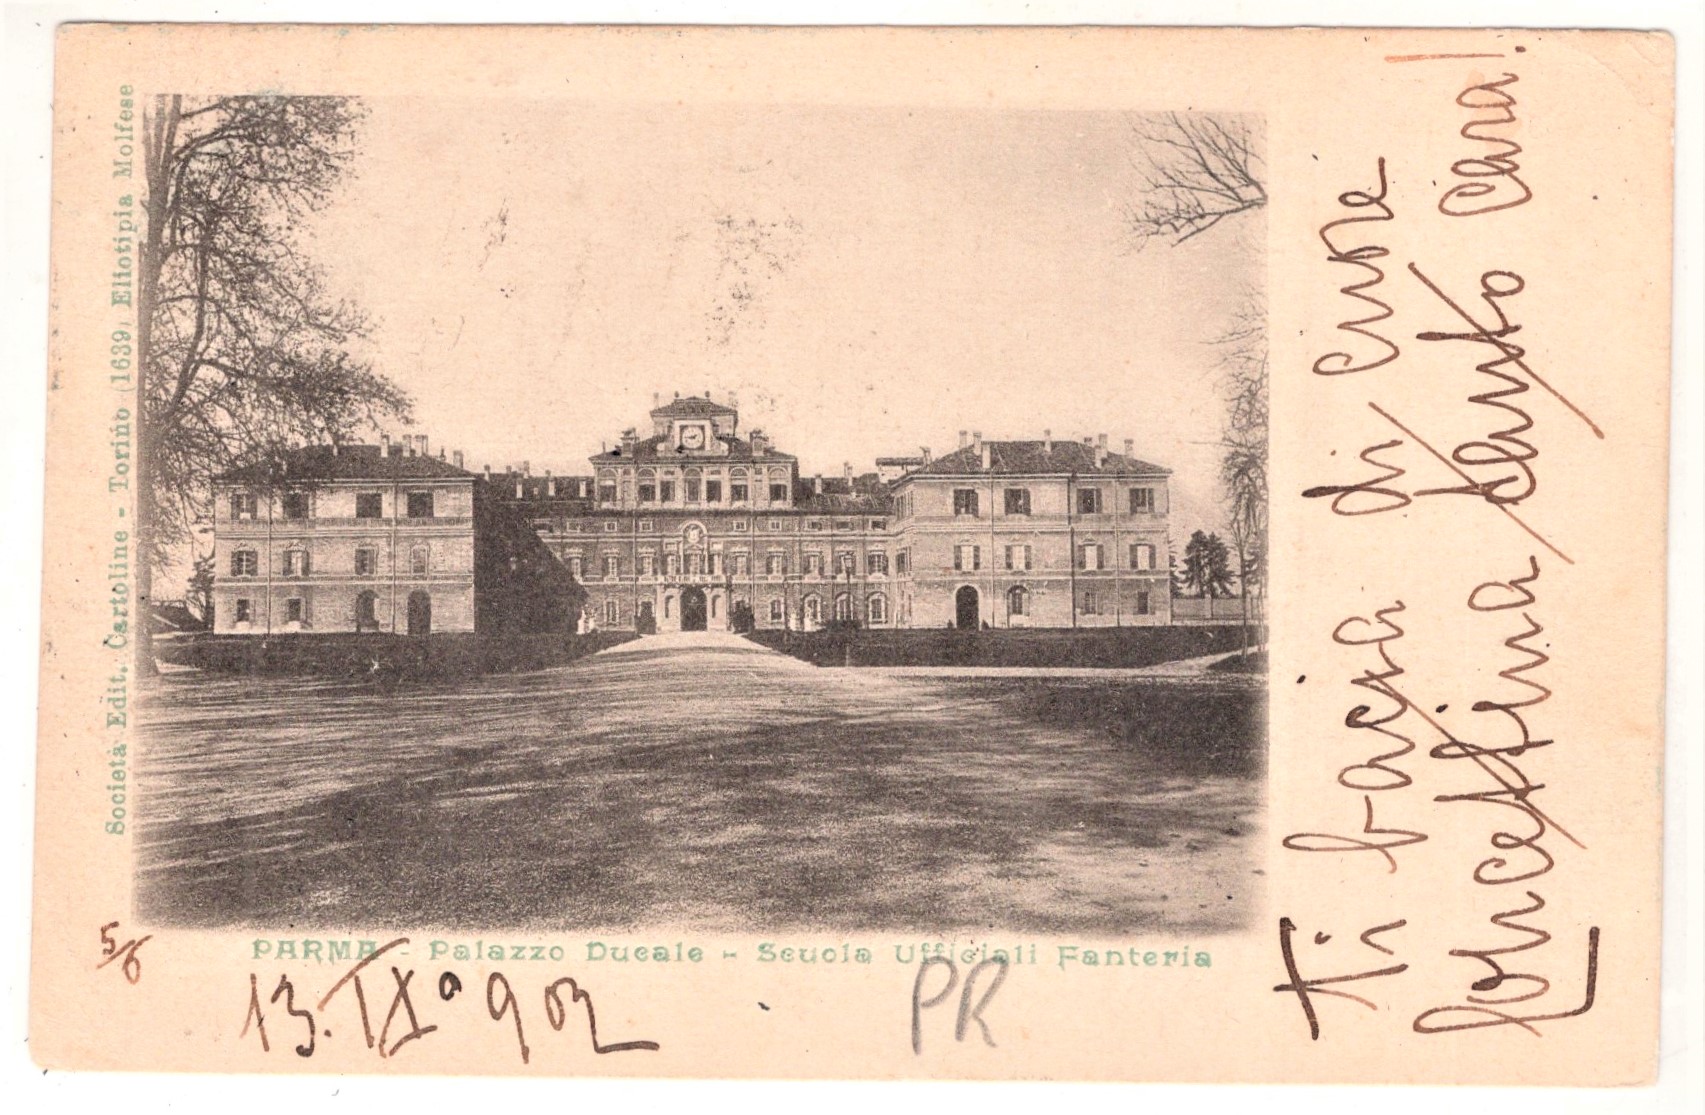 Società Edit. Cartoline - Torino (1639) Eliotipia Molfese
PARMA - Palazzo Ducale - Scuola Ufficiali Fanteria
5/6
13. IXº 902
PR
Ti bacia di cuore
Concettina tanto cara!